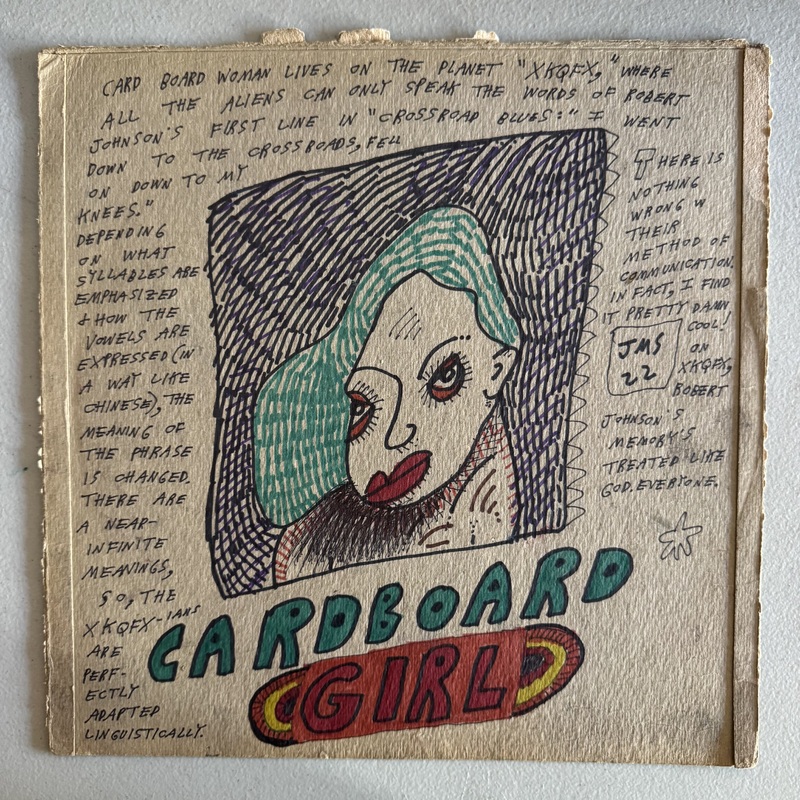 CARD BOARD WOMAN LIVES ON THE PLANET "XKQFX," WHERE
ALL THE ALIENS CAN ONLY SPEAK THE WORDS OF ROBERT
JOHNSON'S FIRST LINE IN "CROSSROAD BLUES:" I WENT
DOWN TO THE CROSSROADS, FELL
ON DOWN TO MY
KNEES."
DEPENDING
ON WHAT
SYLLABLES ARE
EMPHASIZED
& HOW THE
VOWELS ARE
EXPRESSED (IN
A WAY LIKE
CHINESE), THE
MEANING OF
THE PHRASE
IS CHANGED.
THERE ARE
A NEAR-
INFINITE
MEANINGS,
SO, THE
XKQFX-IANS
ARE
PERF-
ECTLY
ADAPTED
LINGUISTICALLY.
THERE IS
NOTHING
WRONG W
THEIR
METHOD OF
COMMUNICATION.
IN FACT, I FIND
IT PRETTY DAMN
COOL!
ON
XKQFX,
ROBERT
JOHNSON'S
MEMORY'S
TREATED LIKE
GOD. EVERYONE.
JMS
22
CARDBOARD
GIRL